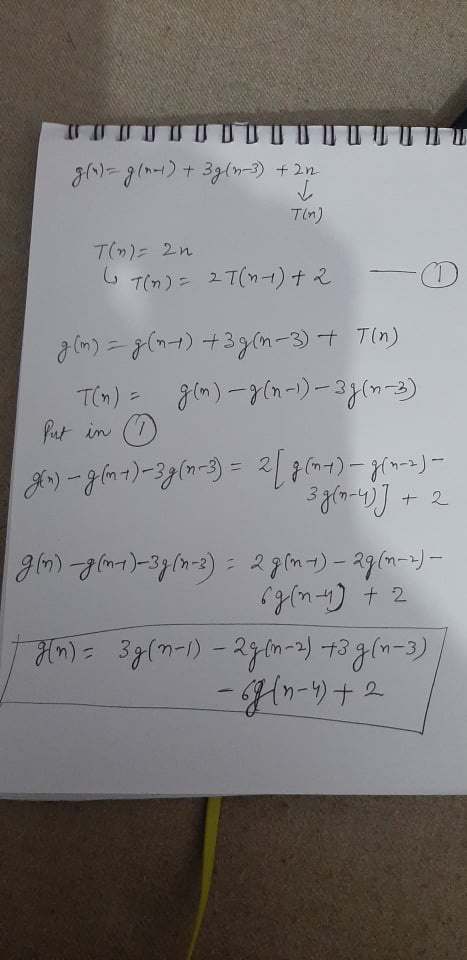 g(n) = g(n-1) + 3g(n-3) + 2n
↓
T(n)
T(n) = 2n
↳ T(n) = 2T(n-1) + 2 — ①
g(n) = g(n-1) + 3g(n-3) + T(n)
T(n) = g(n) - g(n-1) - 3g(n-3)
Put in ①
g(n) - g(n-1) - 3g(n-3) = 2[g(n-1) - g(n-2) -
3g(n-4)] + 2
g(n) - g(n-1) - 3g(n-3) = 2g(n-1) - 2g(n-2) -
6g(n-4) + 2
g(n) = 3g(n-1) - 2g(n-2) + 3g(n-3)
- 6g(n-4) + 2